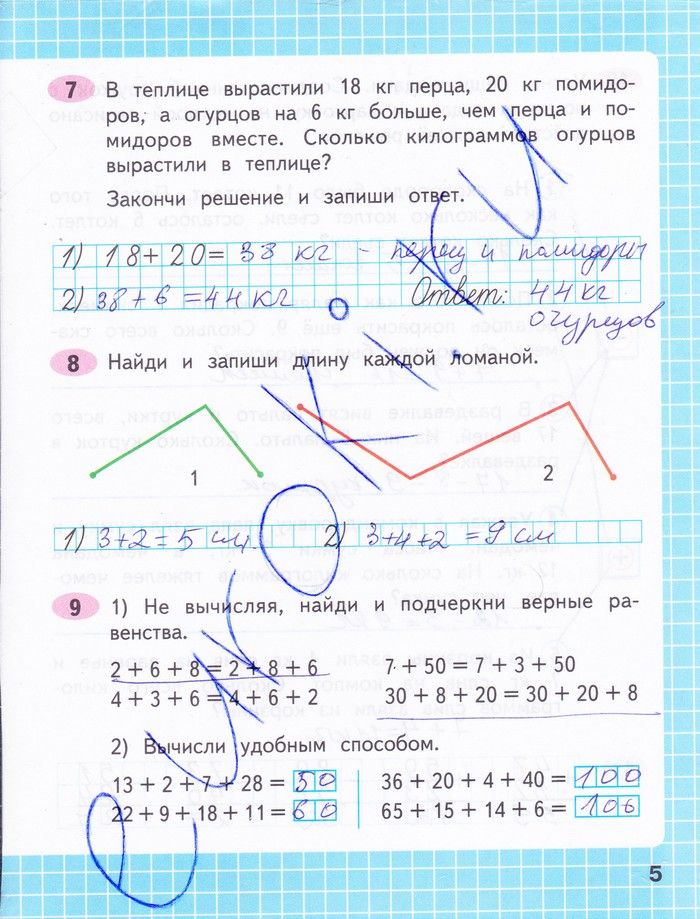 7 В теплице вырастили 18 кг перца, 20 кг помидо-
ров, а огурцов на 6 кг больше, чем перца и по-
мидоров вместе. Сколько килограммов огурцов
вырастили в теплице?
Закончи решение и запиши ответ.
1) 18 + 20 = 38 кг - перец и помидоры
2) 38 + 6 = 44 кг Ответ: 44 кг
огурцов
8 Найди и запиши длину каждой ломаной.
1 2
1) 3+2=5 см. 2) 3+4+2 =9 см
9 1) Не вычисляя, найди и подчеркни верные ра-
венства.
2 + 6 + 8 = 2 + 8 + 6 7 + 50 = 7 + 3 + 50
4 + 3 + 6 = 4 + 6 + 2 30 + 8 + 20 = 30 + 20 + 8
2) Вычисли удобным способом.
13 + 2 + 7 + 28 = 50 36 + 20 + 4 + 40 = 100
22 + 9 + 18 + 11 = 60 65 + 15 + 14 + 6 = 106
5